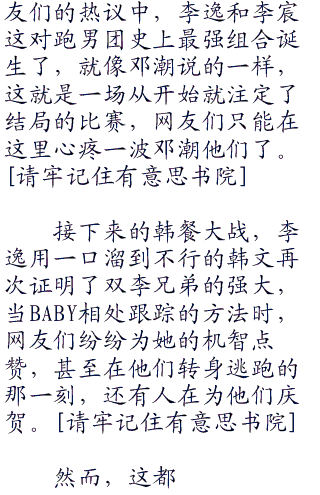 友们的热议中，李逸和李宸
这对跑男团史上最强组合诞
生了，就像邓潮说的一样，
这就是一场从开始就注定了
结局的比赛，网友们只能在
这里心疼一波邓潮他们了。
[请牢记住有意思书院]
接下来的韩餐大战，李
逸用一口溜到不行的韩文再
次证明了双李兄弟的强大，
当BABY相处跟踪的方法时，
网友们纷纷为她的机智点
赞，甚至在他们转身逃跑的
那一刻，还有人在为他们庆
贺。[请牢记住有意思书院]
然而，这都